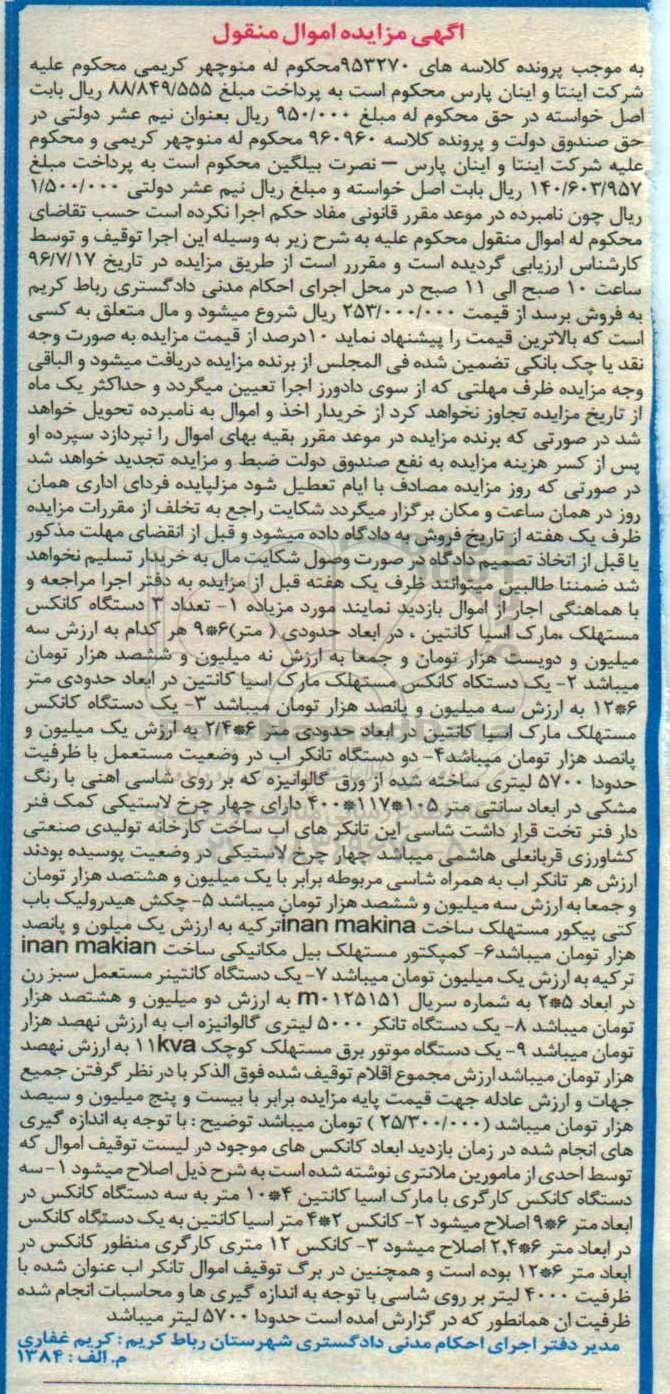 آگهی مزایده اموال منقول
به موجب پرونده کلاسه های ۹۵۳۲۷۰محکوم له منوچهر کریمی محکوم علیه
شرکت اینتا و اینان پارس محکوم است به پرداخت مبلغ ۸۸/۸۴۹/۵۵۵ ریال بابت
اصل خواسته در حق محکوم له مبلغ ۹۵۰/۰۰۰ ریال بعنوان نیم عشر دولتی در
حق صندوق دولت و پرونده کلاسه ۹۶۰۹۶۰ محکوم له منوچهر کریمی و محکوم
علیه شرکت اینتا و اینان پارس – نصرت بیلگین محکوم است به پرداخت مبلغ
۱۴۰/۶۰۳/۹۵۷ ریال بابت اصل خواسته و مبلغ ریال نیم عشر دولتی ۱/۵۰۰/۰۰۰
ریال چون نامبرده در موعد مقرر قانونی مفاد حکم اجرا نکرده است حسب تقاضای
محکوم له اموال منقول محکوم علیه به شرح زیر به وسیله این اجرا توقیف و توسط
کارشناس ارزیابی گردیده است و مقررر است از طریق مزایده در تاریخ ۹۶/۷/۱۷
ساعت ۱۰ صبح الی ۱۱ صبح در محل اجرای احکام مدنی دادگستری رباط کریم
به فروش برسد از قیمت ۲۵۳/۰۰۰/۰۰۰ ریال شروع میشود و مال متعلق به کسی
است که بالاترین قیمت را پیشنهاد نماید ۱۰درصد از قیمت مزایده به صورت وجه
نقد یا چک بانکی تضمین شده فی المجلس از برنده مزایده دریافت میشود و الباقی
وجه مزایده ظرف مهلتی که از سوی دادورز اجرا تعیین میگردد و حداکثر یک ماه
از تاریخ مزایده تجاوز نخواهد کرد از خریدار اخذ و اموال به نامبرده تحویل خواهد
شد در صورتی که برنده مزایده در موعد مقرر بقیه بهای اموال را نپردازد سپرده او
پس از کسر هزینه مزایده به نفع صندوق دولت ضبط و مزایده تجدید خواهد شد
در صورتی که روز مزایده مصادف با ایام تعطیل شود مزلپایده فردای اداری همان
روز در همان ساعت و مکان برگزار میگردد شکایت راجع به تخلف از مقررات مزایده
ظرف یک هفته از تاریخ فروش به دادگاه داده میشود و قبل از انقضای مهلت مذکور
یا قبل از اتخاذ تصمیم دادگاه در صورت وصول شکایت مال به خریدار تسلیم نخواهد
شد ضمننا طالبین میتوانند ظرف یک هفته قبل از مزایده به دفتر اجرا مراجعه و
با هماهنگی اجار از اموال بازدید نمایند مورد مزیاده ۱- تعداد ۳ دستگاه کانکس
مستهلک ،مارک اسیا کانتین ، در ابعاد حدودی ( متر)۶*۹ هر کدام به ارزش سه
میلیون و دویست هزار تومان و جمعا به ارزش نه میلیون و ششصد هزار تومان
میباشد ۲- یک دستکاه کانکس مستهلک مارک اسیا کانتین در ابعاد حدودی متر
۶*۱۲ به ارزش سه میلیون و پانصد هزار تومان میباشد ۳- یک دستگاه کانکس
مستهلک مارک اسیا کانتین در ابعاد حدودی متر ۶*۲/۴ به ارزش یک میلیون و
پانصد هزار تومان میباشد۴- دو دستگاه تانکر اب در وضعیت مستعمل با ظرفیت
حدودا ۵۷۰۰ لیتری ساخته شده از ورق گالوانیزه که بر روی شاسی اهنی با رنگ
مشکی در ابعاد سانتی متر ۱۰۵*۱۱۷*۴۰۰ دارای چهار چرخ لاستیکی کمک فنر
دار فنر تخت قرار داشت شاسی این تانکر های اب ساخت کارخانه تولیدی صنعتی
کشاورزی قربانعلی هاشمی میباشد چهار چرخ لاستیکی در وضعیت پوسیده بودند
ارزش هر تانکر اب به همراه شاسی مربوطه برابر با یک میلیون و هشتصد هزار تومان
و جمعا به ارزش سه میلیون و ششصد هزار تومان میباشد ۵- چکش هیدرولیک باب
کتی پیکور مستهلک ساخت inan makinaترکیه به ارزش یک میلون و پانصد
هزار تومان میباشد۶- کمپکتور مستهلک بیل مکانیکی ساخت inan makian
ترکیه به ارزش یک میلیون تومان میباشد ۷- یک دستگاه کانتینر مستعمل سبز رن
در ابعاد ۵*۲ به شماره سریال m۰۱۲۵۱۵۱ به ارزش دو میلیون و هشتصد هزار
تومان میباشد ۸- یک دستگاه تانکر ۵۰۰۰ لیتری گالوانیزه اب به ارزش نهصد هزار
تومان میباشد ۹- یک دستگاه موتور برق مستهلک کوچک ۱۱kva به ارزش نهصد
هزار تومان میباشد ارزش مجموع اقلام توقیف شده فوق الذکر با در نظر گرفتن جمیع
جهات و ارزش عادله جهت قیمت پایه مزایده برابر با بیست و پنج میلیون و سیصد
هزار تومان میباشد (۲۵/۳۰۰/۰۰۰ ) تومان میباشد توضیح : با توجه به اندازه گیری
های انجام شده در زمان بازدید ابعاد کانکس های موجود در لیست توقیف اموال که
توسط احدی از مامورین ملانتری نوشته شده است به شرح ذیل اصلاح میشود ۱- سه
دستگاه کانکس کارگری با مارک اسیا کانتین ۴*۱۰ متر به سه دستگاه کانکس در
ابعاد متر ۶*۹ اصلاح میشود ۲- کانکس ۲*۴ متر اسیا کانتین به یک دستگاه کانکس
در ابعاد متر ۶*۲,۴ اصلاح میشود ۳- کانکس ۱۲ متری کارگری منظور کانکس در
ابعاد متر ۶*۱۲ بوده است و همچنین در برگ توقیف اموال تانکر اب عنوان شده با
ظرفیت ۴۰۰۰ لیتر بر روی شاسی با توجه به اندازه گیری ها و محاسبات انجام شده
ظرفیت ان همانطور که در گزارش امده است حدودا ۵۷۰۰ لیتر میباشد
مدیر دفتر اجرای احکام مدنی دادگستری شهرستان رباط کریم : کریم غفاری
م. الف : ۱۳۸۴